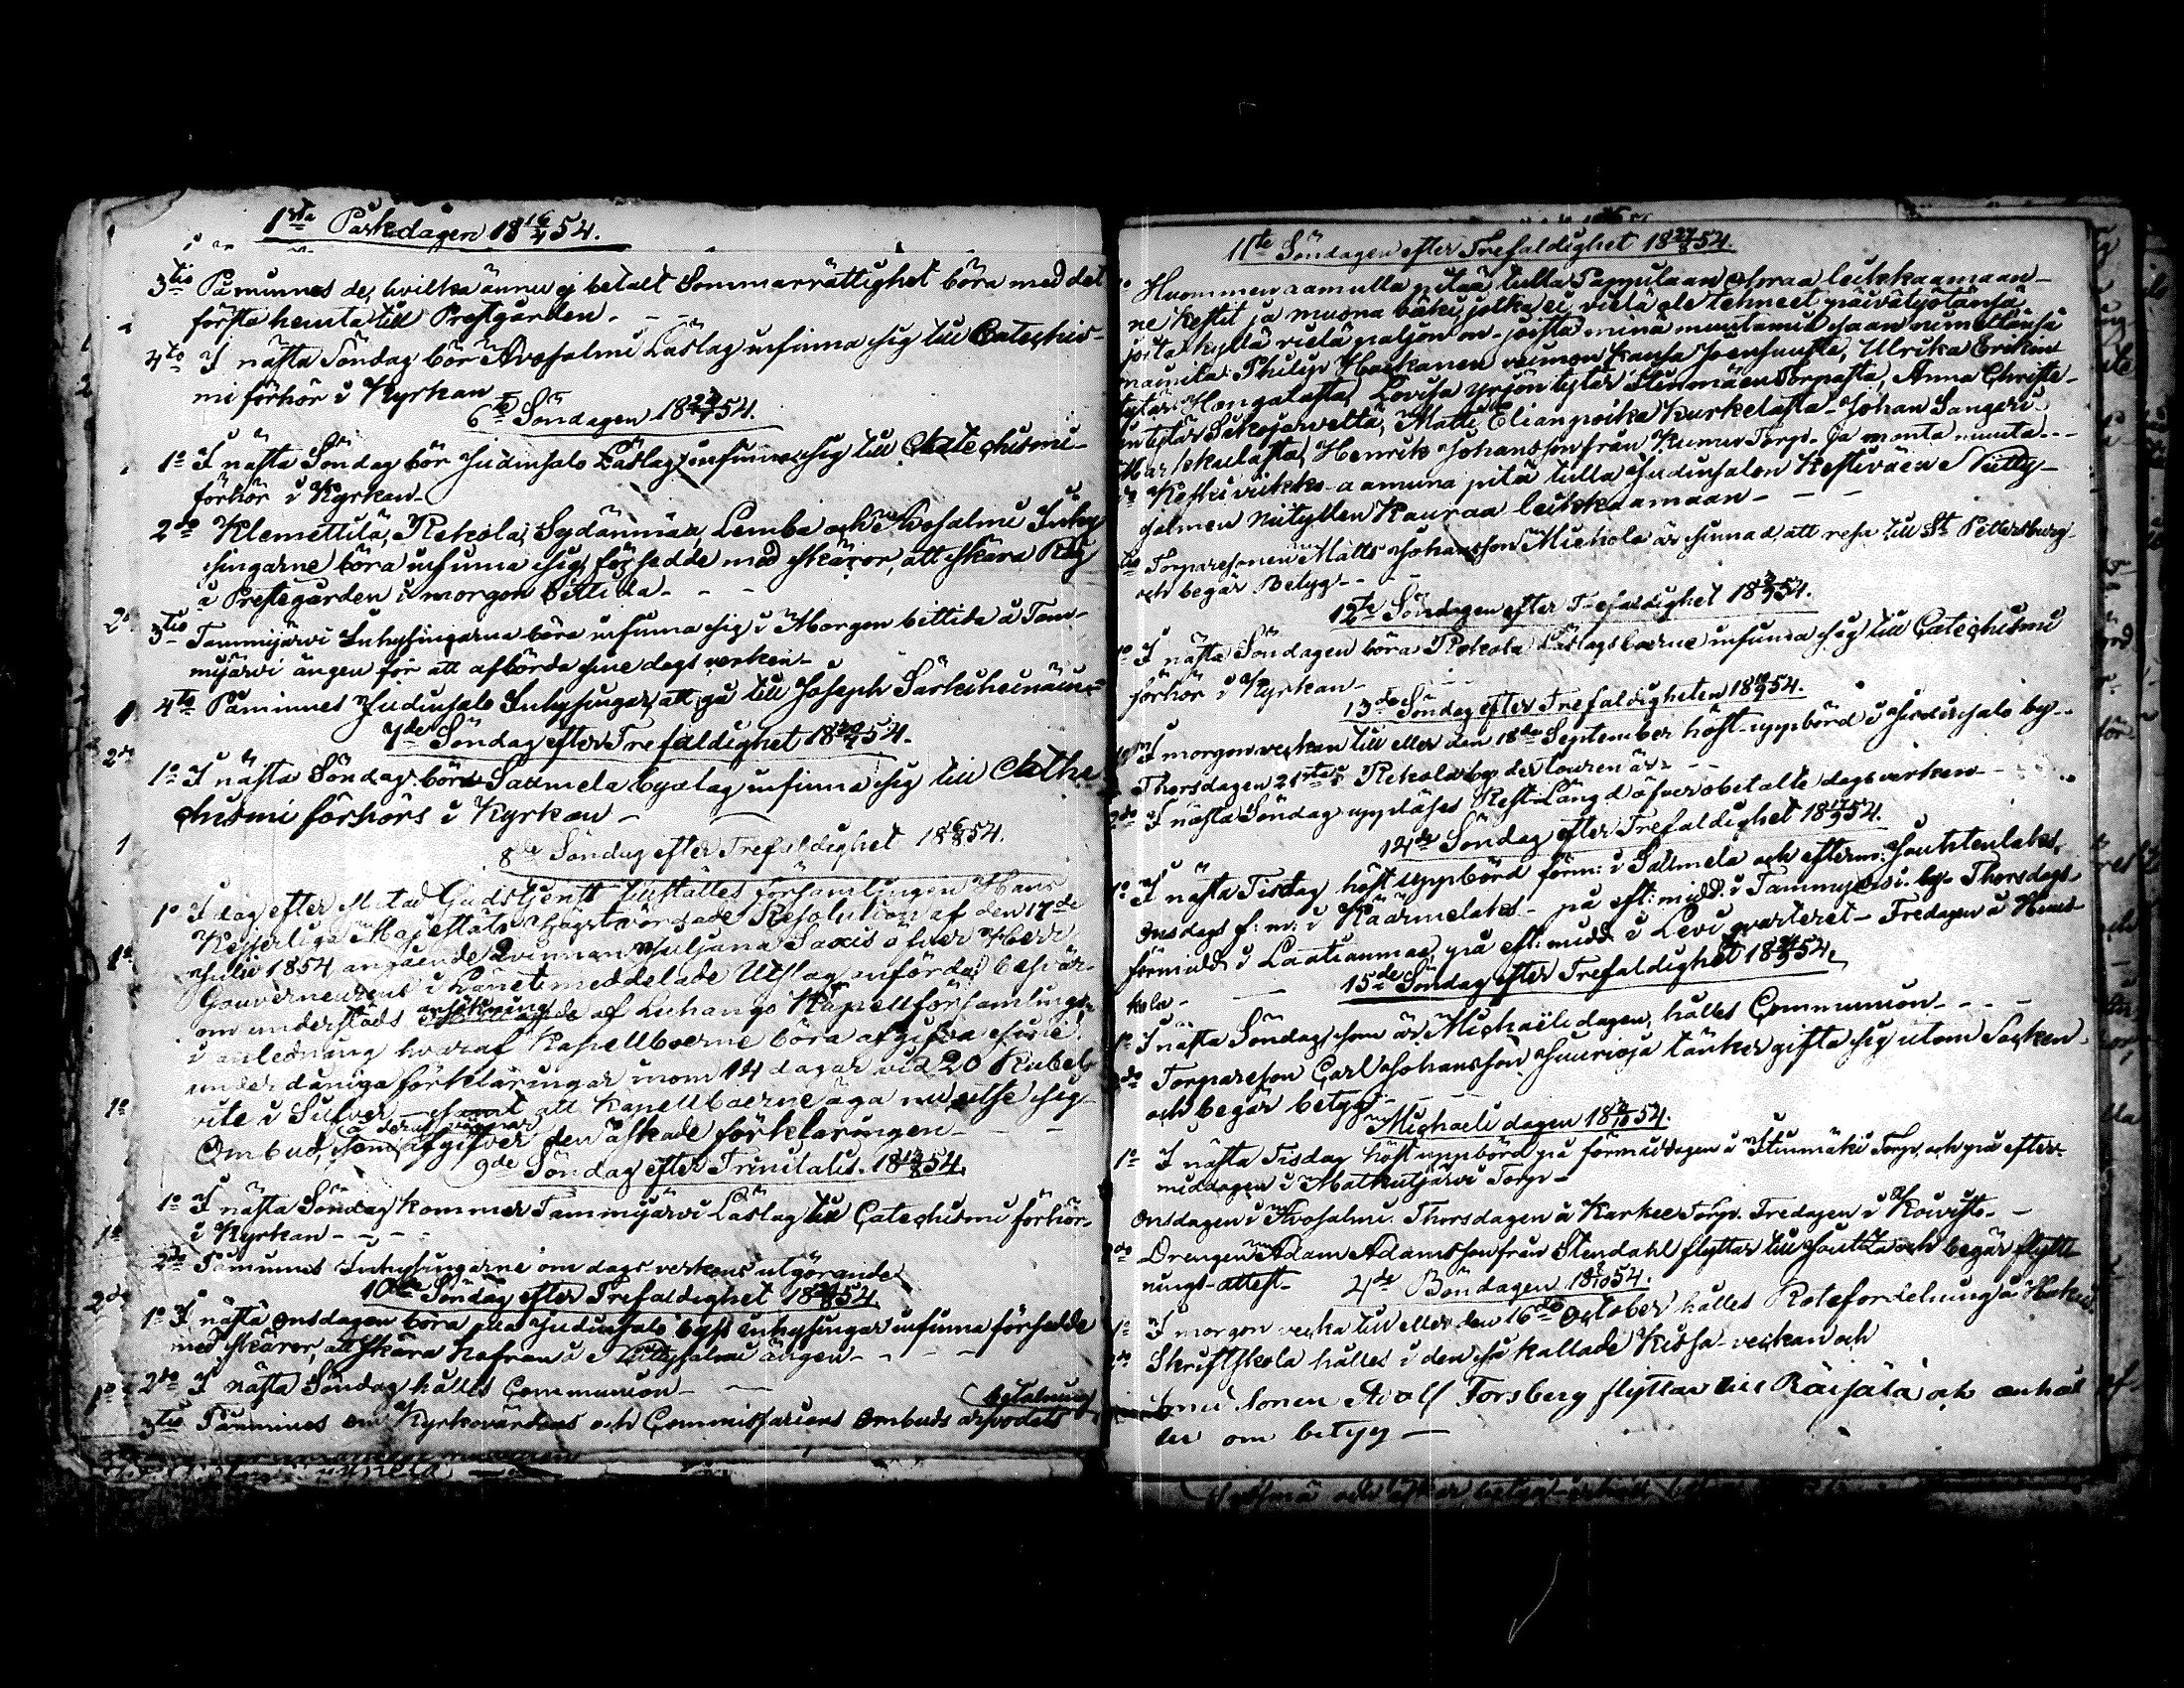 1sta Påskdagen 18 16/4 54.
3tio Påminnes de, hvilka ännu ej betalt Sommarrättighet böra med det
första hemta till Prestgården - - -
4to I nästa Söndag bör Avosalmi Läslag infinna sig till Catechis-
mi förhör i Kyrkan
6te Söndagen 18 54.
1o I nästa Söndag bör Judinsalo Läslag infinna sig till Catechismi-
förhör i Kyrkan-
2do Klemettilä, Rekola, Sydänmaa, Lemba och Avosalmi Inhy-
singarne böra infinna sig, försedde med skäror, att skära Råg
å Prestegården i morgon bittida - - -
3tio Tammijärvi Inhysingarna böra infinna sig i Morgon bittida å Tam-
mijärvi ängen för att afbörda sine dagsverken-
4to Påminnes Judinsalo Inhysingar, att gå till Joseph
7de Söndag efter Trefaldighet 18 30/7 54.
1o I nästa Söndag böra Saamela byalag infinna sig till Cathe
chismi förhörs i Kyrkan -
8de Söndag efter Trefaldighet 18 6/8 54.
1o I dag efter slutad Gudstjenst tillställes församlingen Hans
Kejserliga Majestäts högstvördade Resolution af den 17de
Julii 1854 angående Qvinnan Juljana Saxis öfver Herr
Gouverneurens i Länet meddelade Utslag anförda besvär
om understöds ansökning af Luhango Kapellförsamlings-
i anledning hvaraf Kapellboerne böra afgifva sine
underdåniga förklaringar inom 14 dagar vid 20 Rubels
vite i Silfver - samt att Kapellboerne äga nu utse sig
Ombud, som å deras vägnar afgifver den äskade förklaringen - - -
9de Söndag efter Trinitatis. 18 13/8 54.
1o I nästa Söndag kommer Tammijärvi Läslag till Catechismi förhör-
i Kyrkan - - - -
2do Påminnes Inhysingarne om dags-verkens utgörande
10de Söndag efter Trefaldighet 18 20/8 54.
1o I nästa Onsdagen böra Judinsalo bys inhysingar infinna försedde
med skäror, att skära hafran i Niittysalmi ängen - - - -
2do I nästa Söndag hålles Communion - -
3tio Påminnes om Kyrkovärdens och Commissariens Ombuds arfvodets betalning
11te Söndagen efter Trefaldighet 18 27/8 54.
Huommen aamulla pitää tulla Pappilaan ohraa leikkaamaan -
ne kestit ja muona väki, jotka ei vielä ole tehneet päivätyötänsä
joita kyllä vielä paljon on - joista minä muutamia saan nimellänsä
mainita: Philip Hoskanen vaimon kansa Joensuusta, Ulrika Erikin
tytär Hangalasta, Lovisa Yrjön tytär Stenmäen Torpasta, Anna Christi-
in tytär Sikojärveltä, Matti Elianpoika Kurkelasta - Johan Sangeri
Markkulasta, Henrik Johansson från Kumus Torp - Ja monta muuta - - -
Keskiviikko aamuna pitä tulla Judinsalon Kestiväen Niitty-
salmen niitylle Kauraa leikkaamaan - - -
Torparesonen Matts Johansson Michola är sinnad, att resa till St Pettersburg
och begär Betyg - - -
12te Söndagen efter Trefaldighet 18 3/9 54.
1o I nästa Söndagen böra Rekola Läslagsboerne infinna sig till Catechismi
förhör i Kyrkan - - -
13de Söndag efter Trefaldigheten 18 10/9 54.
1o I morgon veckan till eller den 18de September höst-uppbörd i Judinsalo by - -
Thorsdagen 21sta i Rekola by der touren är - -
2do I nästa Söndag uppläses Rest Längd öfver obetalte dagsverken - -
14de Söndag efter Trefaldighet 18 17/9 54.
1o I nästa Tisdag höst uppbörd förm: i Saamela och efterm: Hauhtenlaks,
Onsdags f: m: i Käärmelaks - på eft: midd. i Tammijärvi by - Thorsdags
förmidd i Laatianmaa, på eft: midd i Levi qvarteret - Fredagen å
kola -
15de Söndag efter Trefaldighet 18 24/9 54.
1o I nästa Söndag, som är Michaëli dagen, hålles Communion - - - -
2do Torpareson Carl Johansson Juurioja tänker gifta sig utom Socken
och begär betyg - - -
Michaeli dagen 18 1/10 54.
1o I nästa Tisdag höst uppbörd på förmiddagen i Stinmäki Torp, och på efter-
middagen i Matkutjärvi Torp -
Onsdagen i Avosalmi. Thorsdagen å Karkee Torp. Fredagen i Koivisto - -
2do Drengen Adam Adamsson från Stendahl flyttar till och begär flytt-
nings-attest -
4de Böndagen 18 8/10 54.
1o I morgon vecka till eller den 16de October hålles Rotefördelning å
2do Skriftskola hålles i den så kallade Kissa-veckan och
Adolf Forsberg flyttar till Räisälä och anhål
ler om betyg -